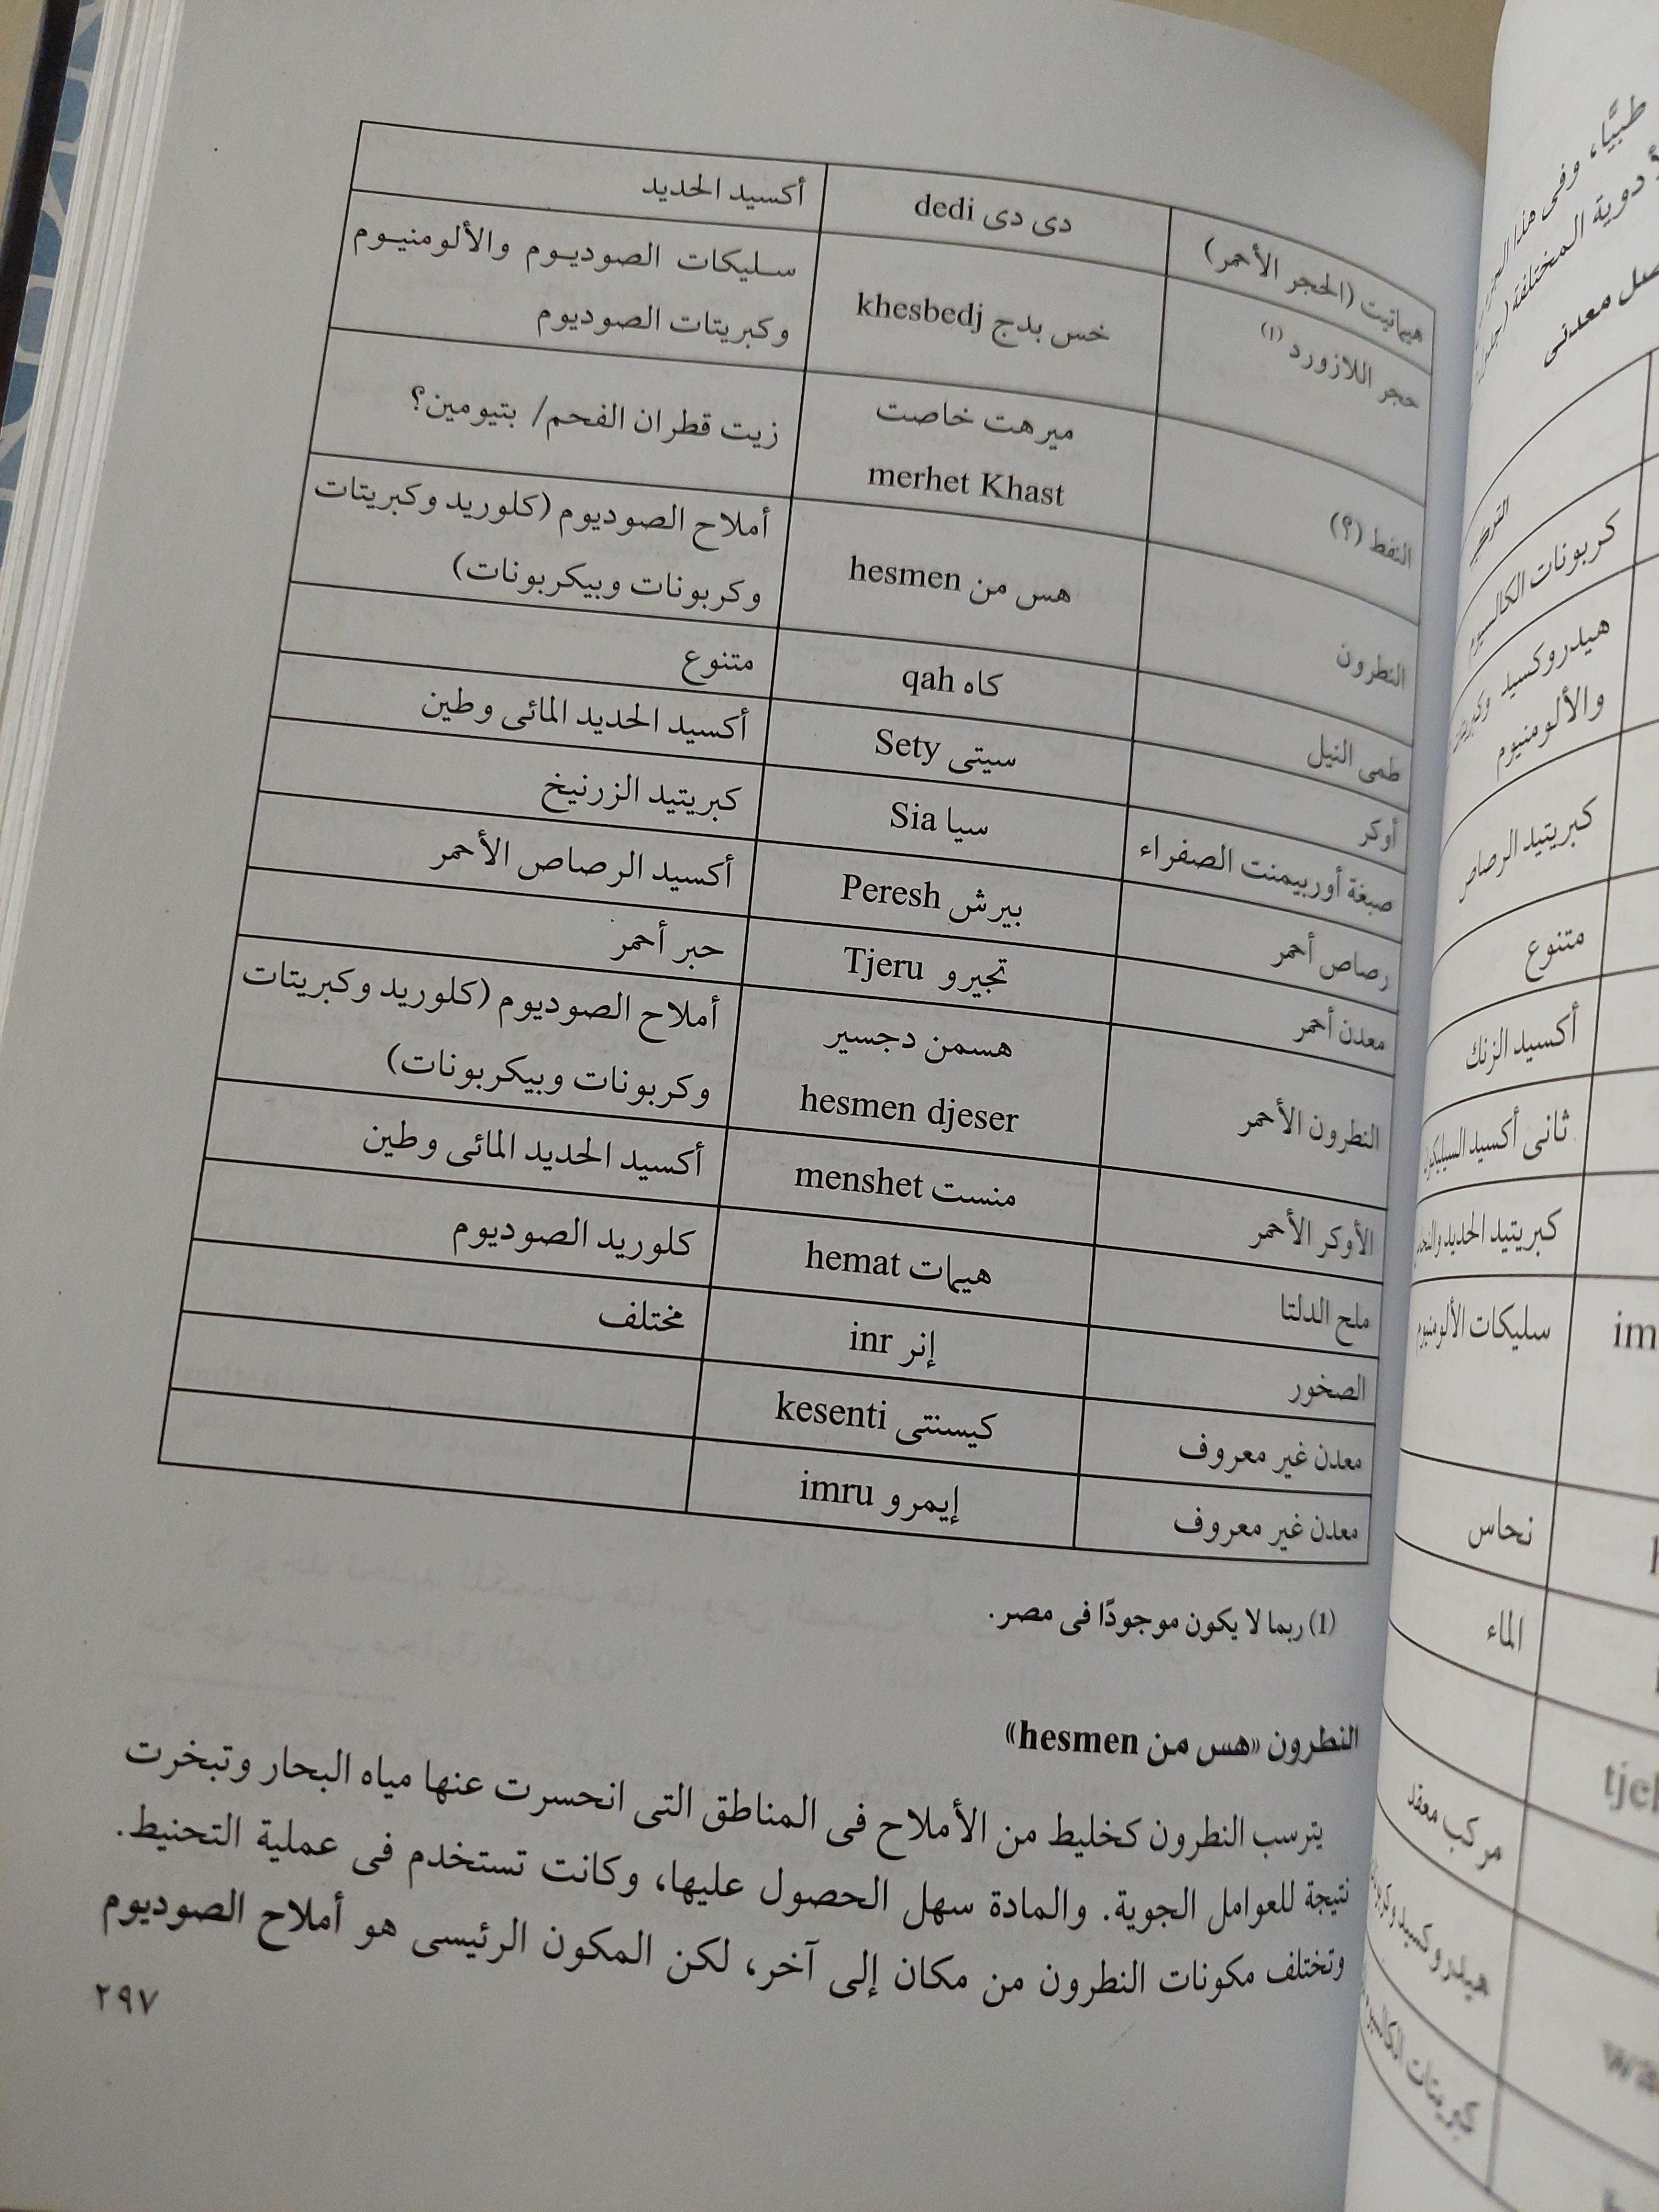 هيماتيت (الحجر الأحمر) دى دى dedi أكسيد الحديد
حجر اللازورد (١) خس بدج khesbedj سليكات الصوديوم والألومنيوم
وكبريتات الصوديوم
النفط (؟) ميرهت خاصت merhet Khast زيت قطران الفحم/ بتيومين؟
النطرون هس من hesmen أملاح الصوديوم (كلوريد وكبريتات
وكربونات وبيكربونات)
طمى النيل كاه qah متنوع
أوكر سيتى Sety أكسيد الحديد المائى وطين
صبغة أوربيمنت الصفراء سيا Sia كبريتيد الزرنيخ
رصاص أحمر بيرش Peresh أكسيد الرصاص الأحمر
معدن أحمر تجيرو Tjeru حبر أحمر
النطرون الأحمر هسمن دجسير hesmen djeser أملاح الصوديوم (كلوريد وكبريتات
وكربونات وبيكربونات)
الأوكر الأحمر منست menshet أكسيد الحديد المائى وطين
ملح الدلتا هيمات hemat كلوريد الصوديوم
الصخور إنر inr مختلف
معدن غير معروف كيسنتى kesenti
معدن غير معروف إيمرو imru
(١) ربما لا يكون موجودًا فى مصر.
النطرون «هس من hesmen»
يترسب النطرون كخليط من الأملاح فى المناطق التى انحسرت عنها مياه البحار وتبخرت
نتيجة للعوامل الجوية. والمادة سهل الحصول عليها، وكانت تستخدم فى عملية التحنيط.
وتختلف مكونات النطرون من مكان إلى آخر، لكن المكون الرئيسى هو أملاح الصوديوم
٢٩٧
طبيًّا، وفى هذا
أدوية المختلفة
معدنى
كربونات الكالسيوم
هيدروكسيد
والألومنيوم
كبريتيد الرصاص
متنوع
أكسيد الزنك
ثانى أكسيد السيليكون
كبريتيد الحديد
سليكات الألومنيوم
نحاس
الماء
مركب معقد
هيدروكسيد
كبريتات